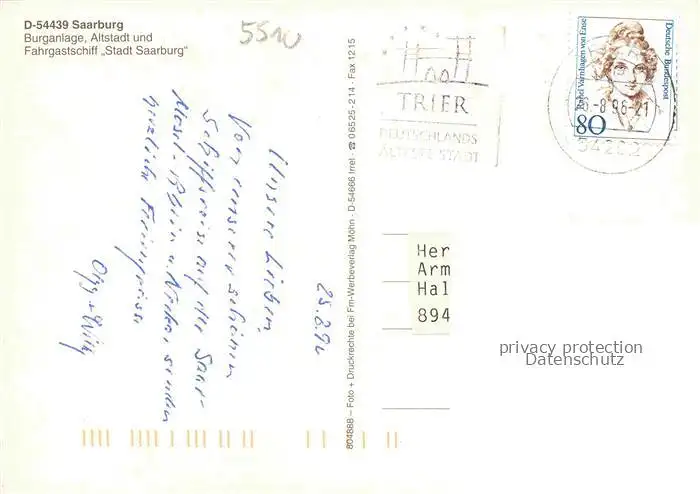 D-54439 Saarburg
Burganlage, Altstadt und
Fahrgastschiff „Stadt Saarburg"
5510
Unsere Lieben,
Von unserer schönen
Schiffsreise auf der Saar-
Mosel-Rhein u. Neckar, senden
herzliche Feriengrüsse
25.8.96
804888 – Foto + Druckrechte bei Fm-Werbeverlag Möhn - D-54666 Irrel - ☎ 06525-214 - Fax 1215
TRIER
DEUTSCHLANDS
ÄLTESTE STADT
-8.96-21
54292
Rahel Varnhagen von Ense
Deutsche Bundespost
80
Her
Arm
Hal
894
privacy protection
Datenschutz